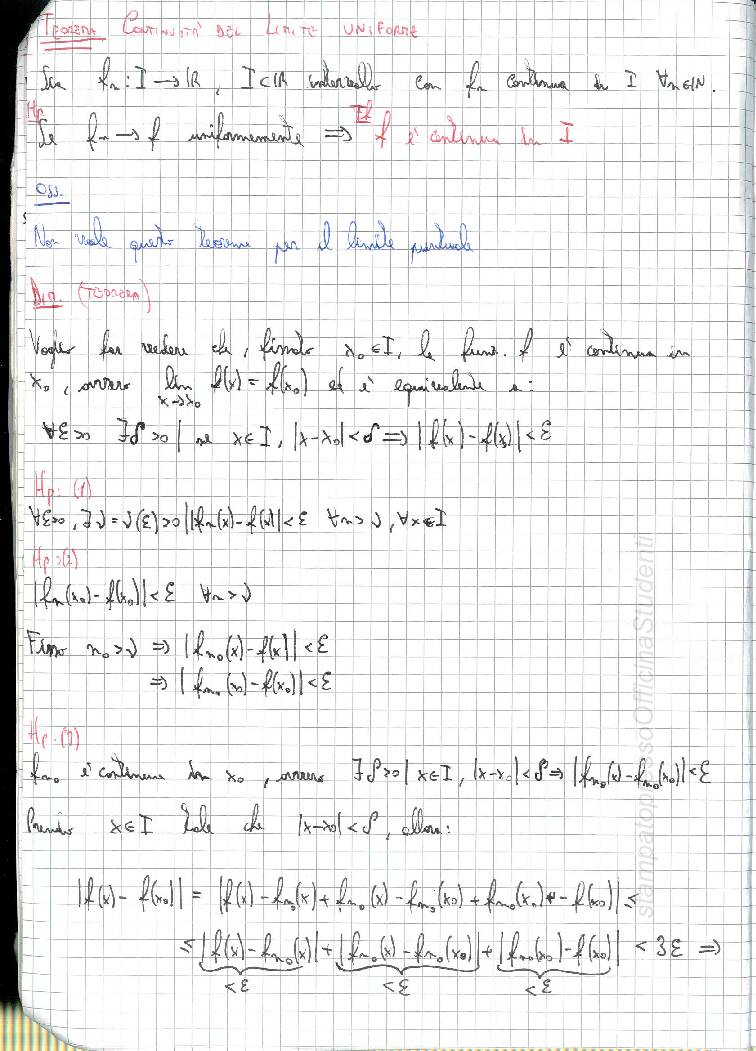 TEOREMA CONTINUITA' DEL LIMITE UNIFORME
Sia fn: I → ℝ, I ⊂ ℝ intervallo con fn continua in I ∀n∈ℕ.
Hp Th
Se fn → f uniformemente ⇒ f è continua in I
Oss.
Non vale questo teorema per il limite puntuale
Dim. (TEOREMA)
Voglio far vedere che, fissato x₀ ∈ I, la funz. f è continua in
x₀, ovvero lim x→x₀ f(x) = f(x₀) ed è equivalente a:
∀ε>0 ∃δ>0 | se x∈I, |x-x₀|<δ ⇒ |f(x)-f(x₀)|<ε
Hp: (1)
∀ε>0, ∃ν=ν(ε)>0 | |fn(x)-f(x)|<ε ∀n>ν, ∀x∈I
Hp:(2)
|fn(x₀)-f(x₀)|<ε ∀n>ν
Fisso n₀>ν ⇒ |fn₀(x)-f(x)|<ε
⇒ |fn₀(x₀)-f(x₀)|<ε
Hp.(3)
fn₀ è continua in x₀, ovvero ∃δ>0 | x∈I, |x-x₀|<δ ⇒ |fn₀(x)-fn₀(x₀)|<ε
Prendo x∈I tale che |x-x₀|<δ, allora:
|f(x)-f(x₀)| = |f(x)-fn₀(x)+fn₀(x)-fn₀(x₀)+fn₀(x₀)-f(x₀)| ≤
≤ |f(x)-fn₀(x)|+|fn₀(x)-fn₀(x₀)|+|fn₀(x₀)-f(x₀)| < 3ε ⇒
<ε <ε <ε
stampatopressoOfficinaStudenti